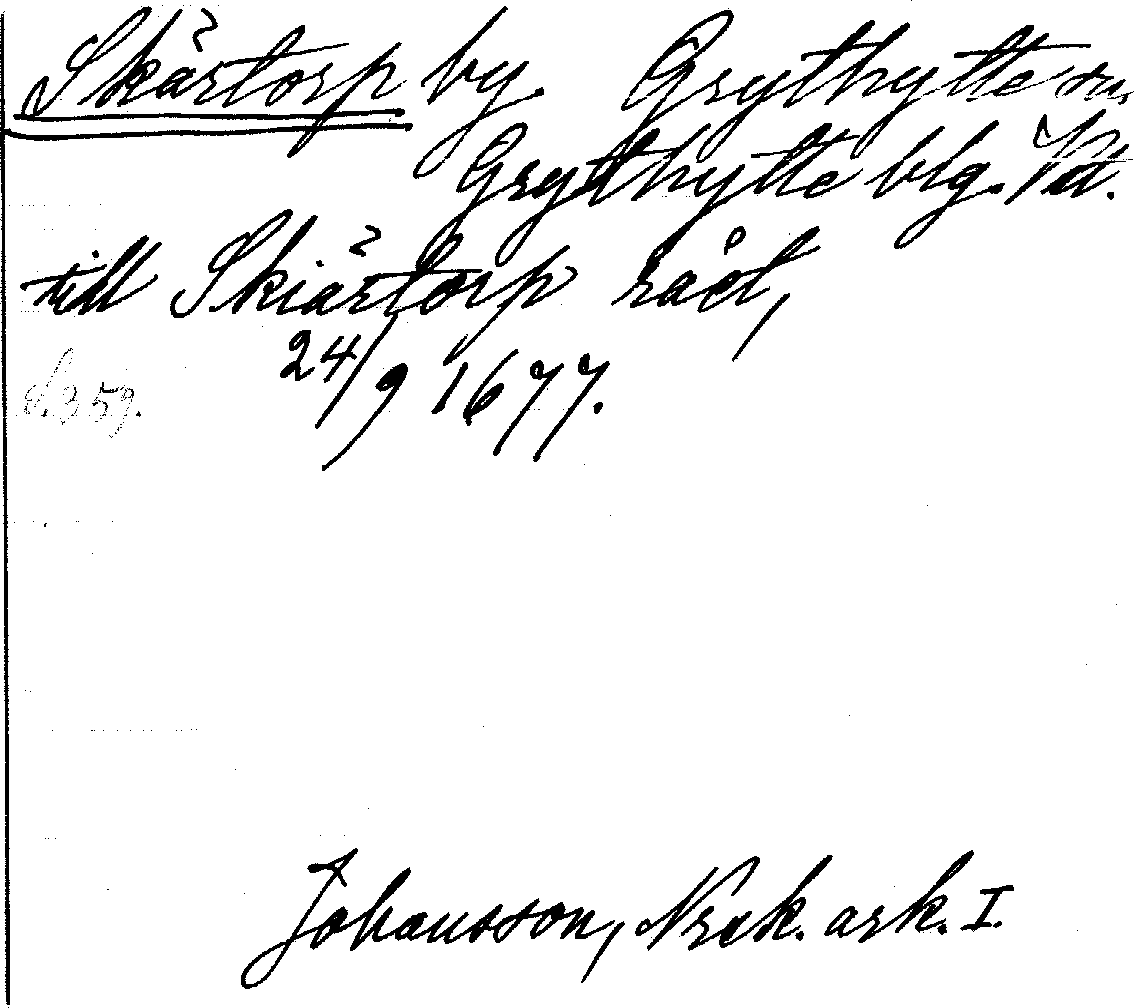 Skärtorp by. Grythytte sn,
Grythytte blg. Vstl.
till Skiärtorp rååt,
24/9 1677.
S. 359.
Johansson, Norak. ark. I.